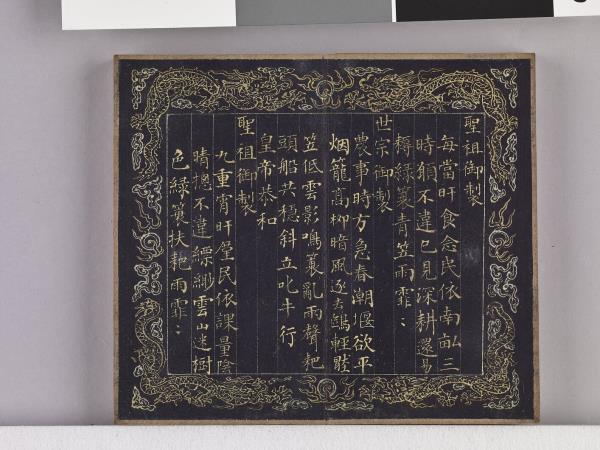 聖祖御製
每當旰食念民依南畝三
時願不違已見深耕還易
耨綠蓑青笠雨霏〻
世宗御製
農事時方急春潮堰欲平
烟籠高柳暗風逐去鷗輕壓
笠低雲影鳴蓑亂雨聲耙
頭船共穩斜立叱牛行
皇帝恭和
聖祖御製
九重宵旰厪民依課量陰
晴總不違縹緲雲山迷樹
色綠蓑扶耙雨霏〻